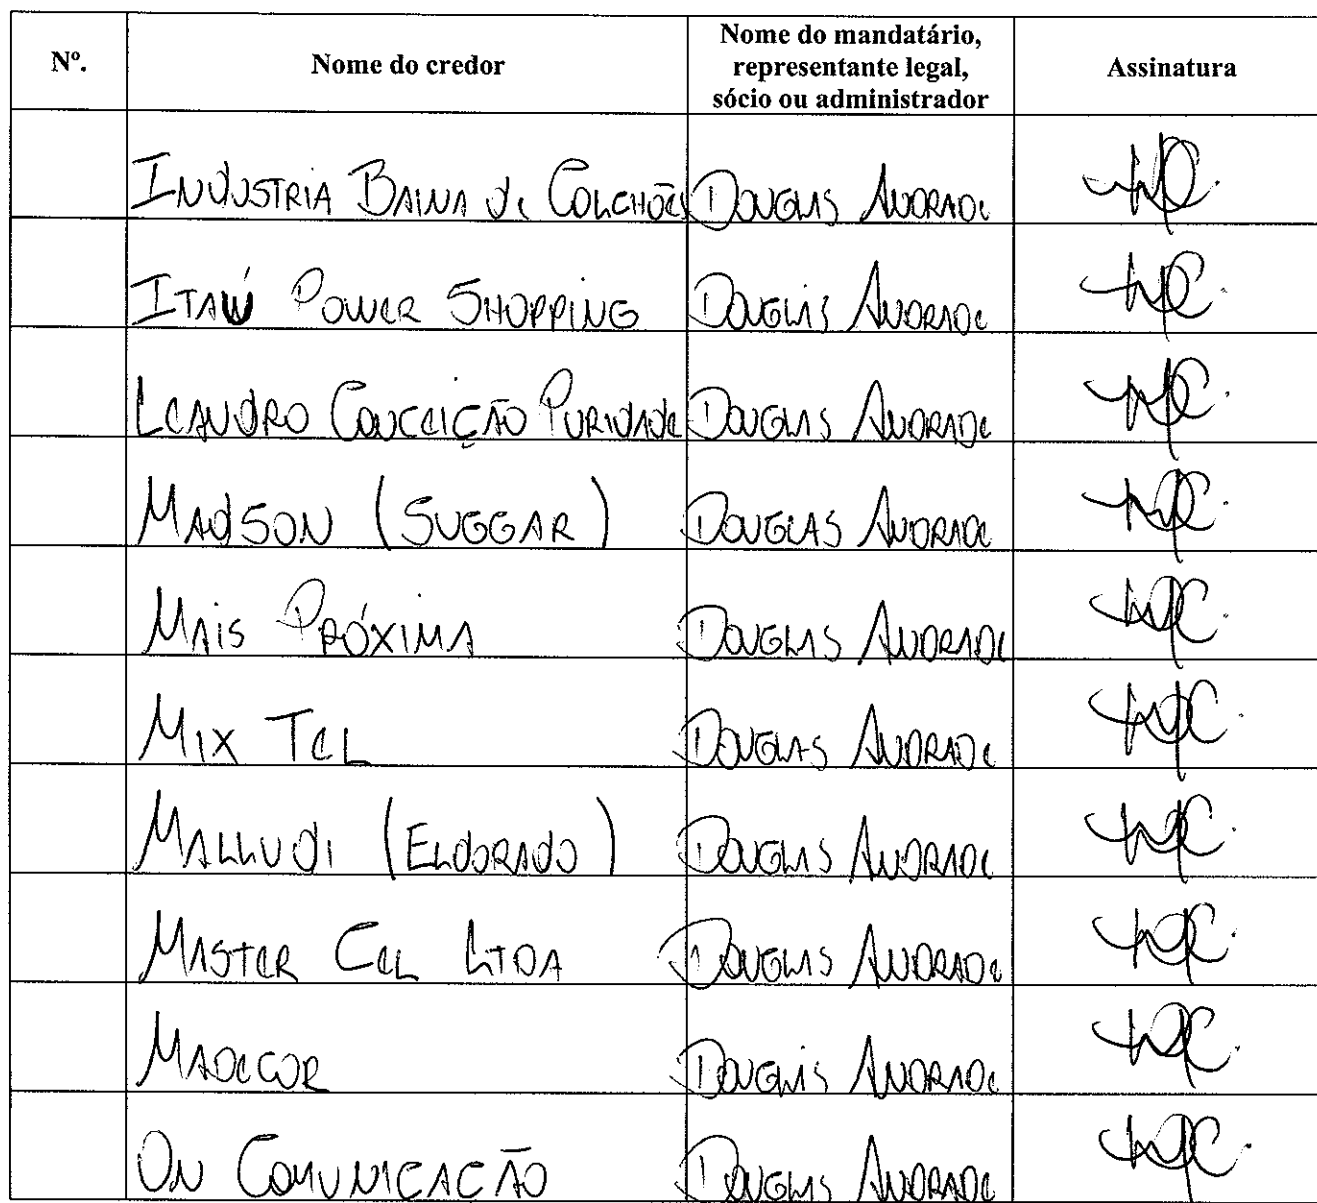 Nº. Nome do credor Nome do mandatário, representante legal, sócio ou administrador Assinatura
INDUSTRIA BAINA de COLCHÕES DOUGLAS ANDRADE
ITAÚ POWER SHOPPING DOUGLAS ANDRADE
LEANDRO CONCEIÇÃO PURIDADE DOUGLAS ANDRADE
MADSON (SUGGAR) DOUGLAS ANDRADE
MAIS PRÓXIMA DOUGLAS ANDRADE
MIX TEL DOUGLAS ANDRADE
MALLUDI (ELDORADO) DOUGLAS ANDRADE
MASTER CEL LTDA DOUGLAS ANDRADE
MADECOR DOUGLAS ANDRADE
ON COMUNICAÇÃO DOUGLAS ANDRADE